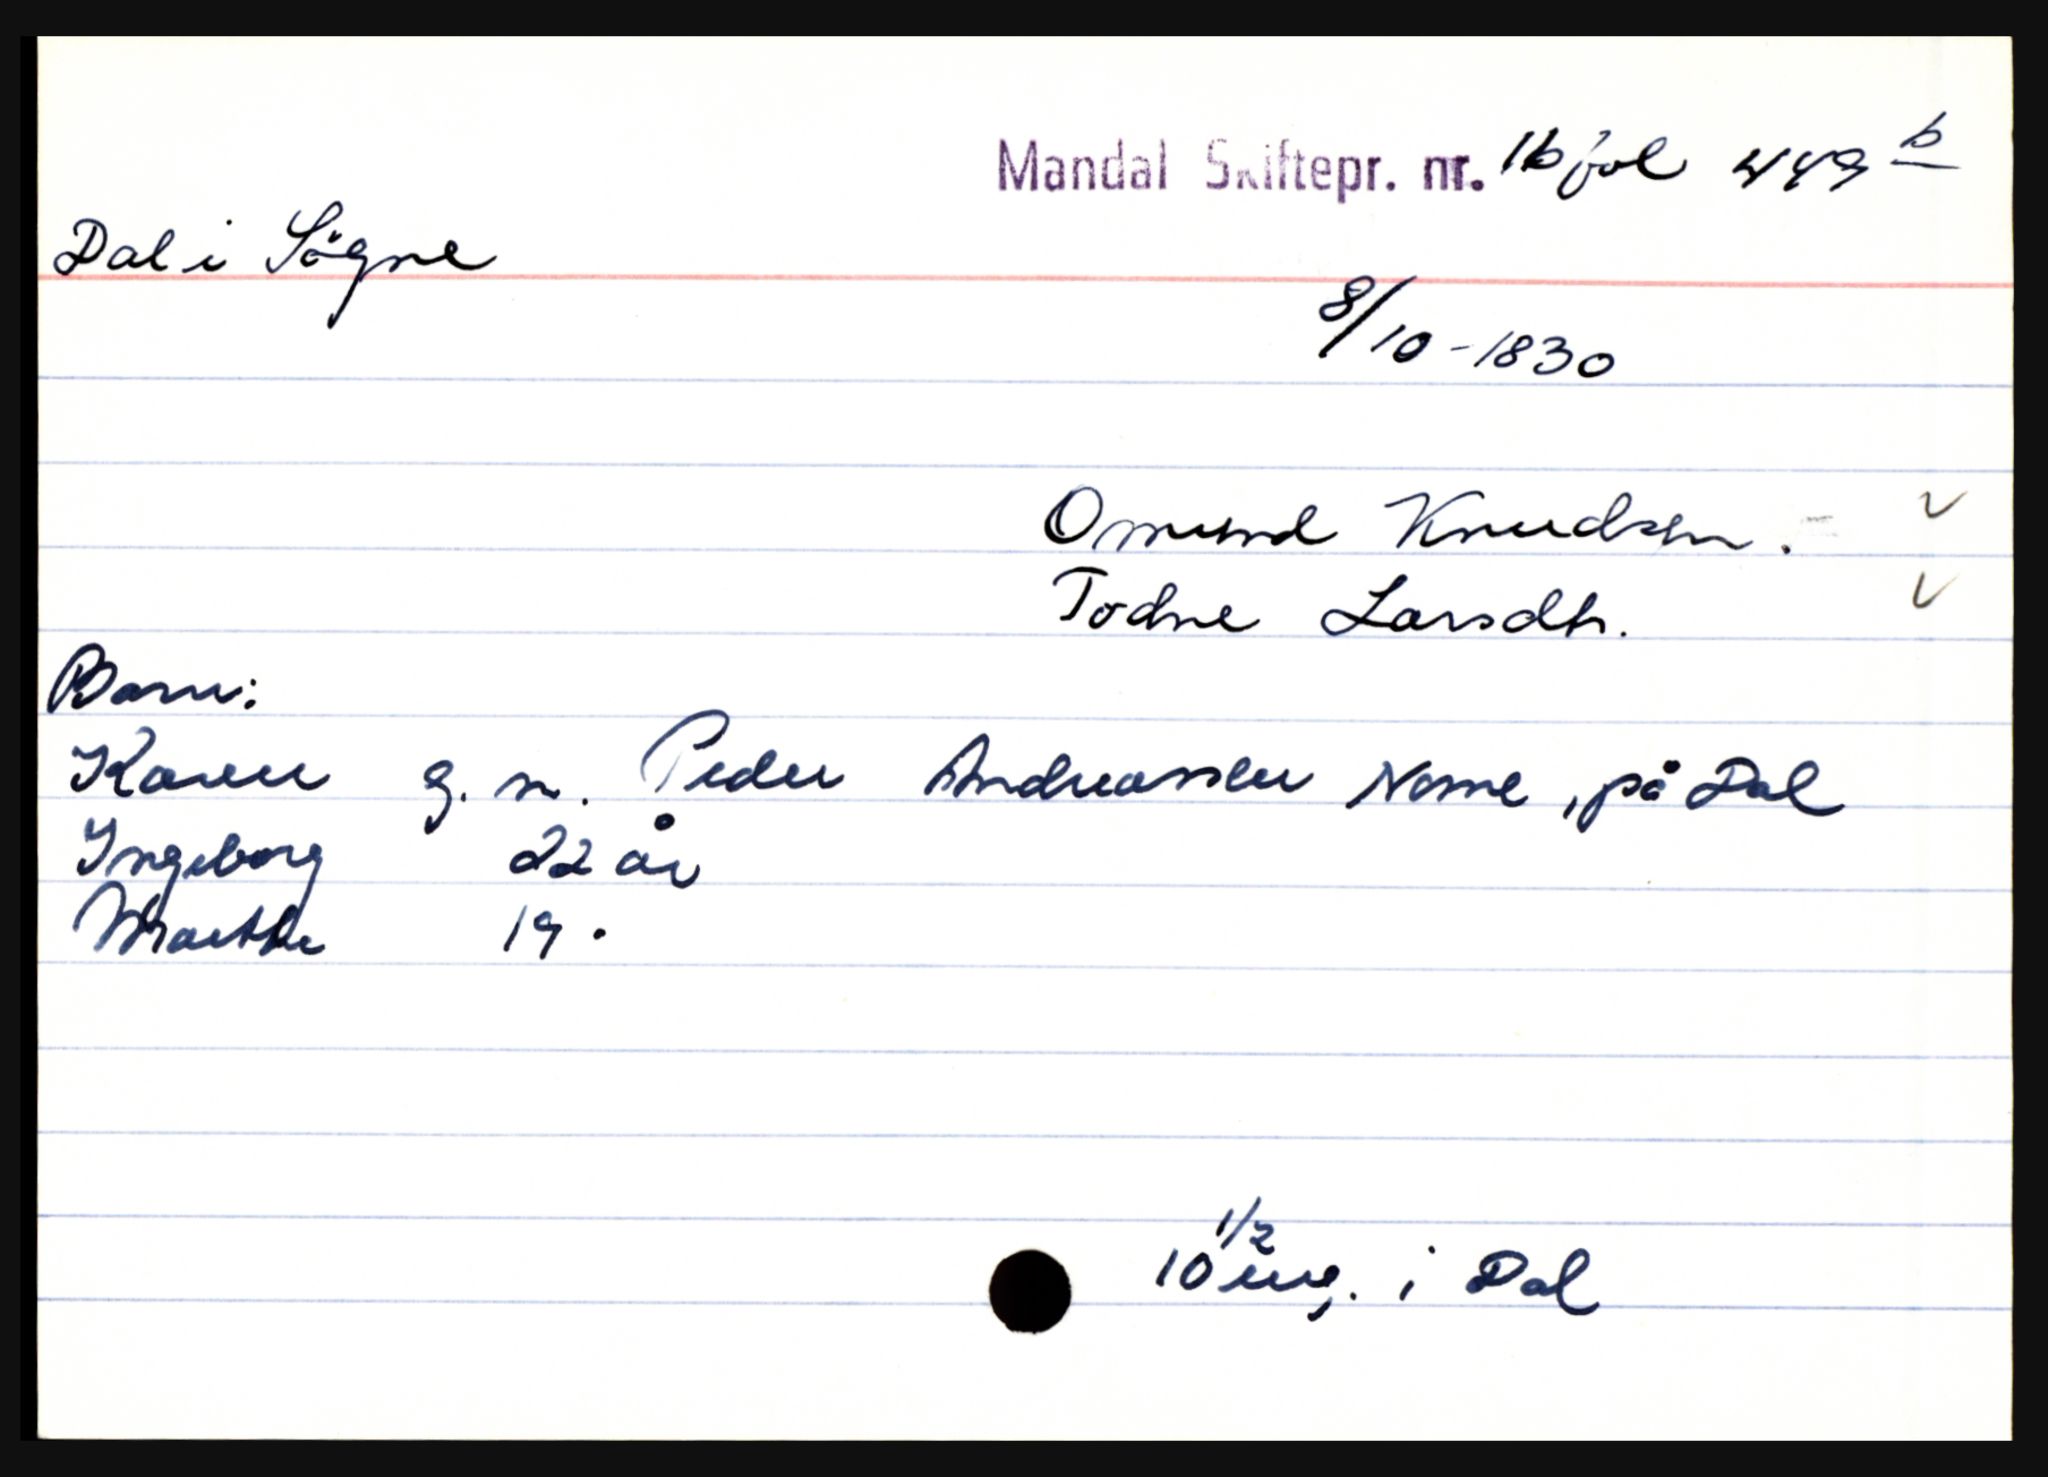 Mandal Skiftepr. nr. 16 fol 449 b
Dal i Sögne
8/10-1830
Omund Knudsen.
Todne Larsdtr.
Barn:
Karen g. m. Peder Andreassen Nome, på Dal
Ingeborg 22 år
Marthe 19 .
10 1/2 eng. i Dal